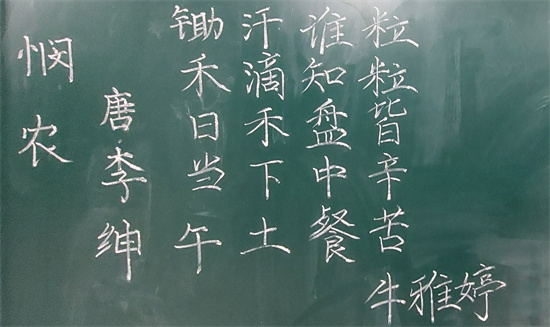 悯农
唐李绅
锄禾日当午
汗滴禾下土
谁知盘中餐
粒粒皆辛苦
牛雅婷